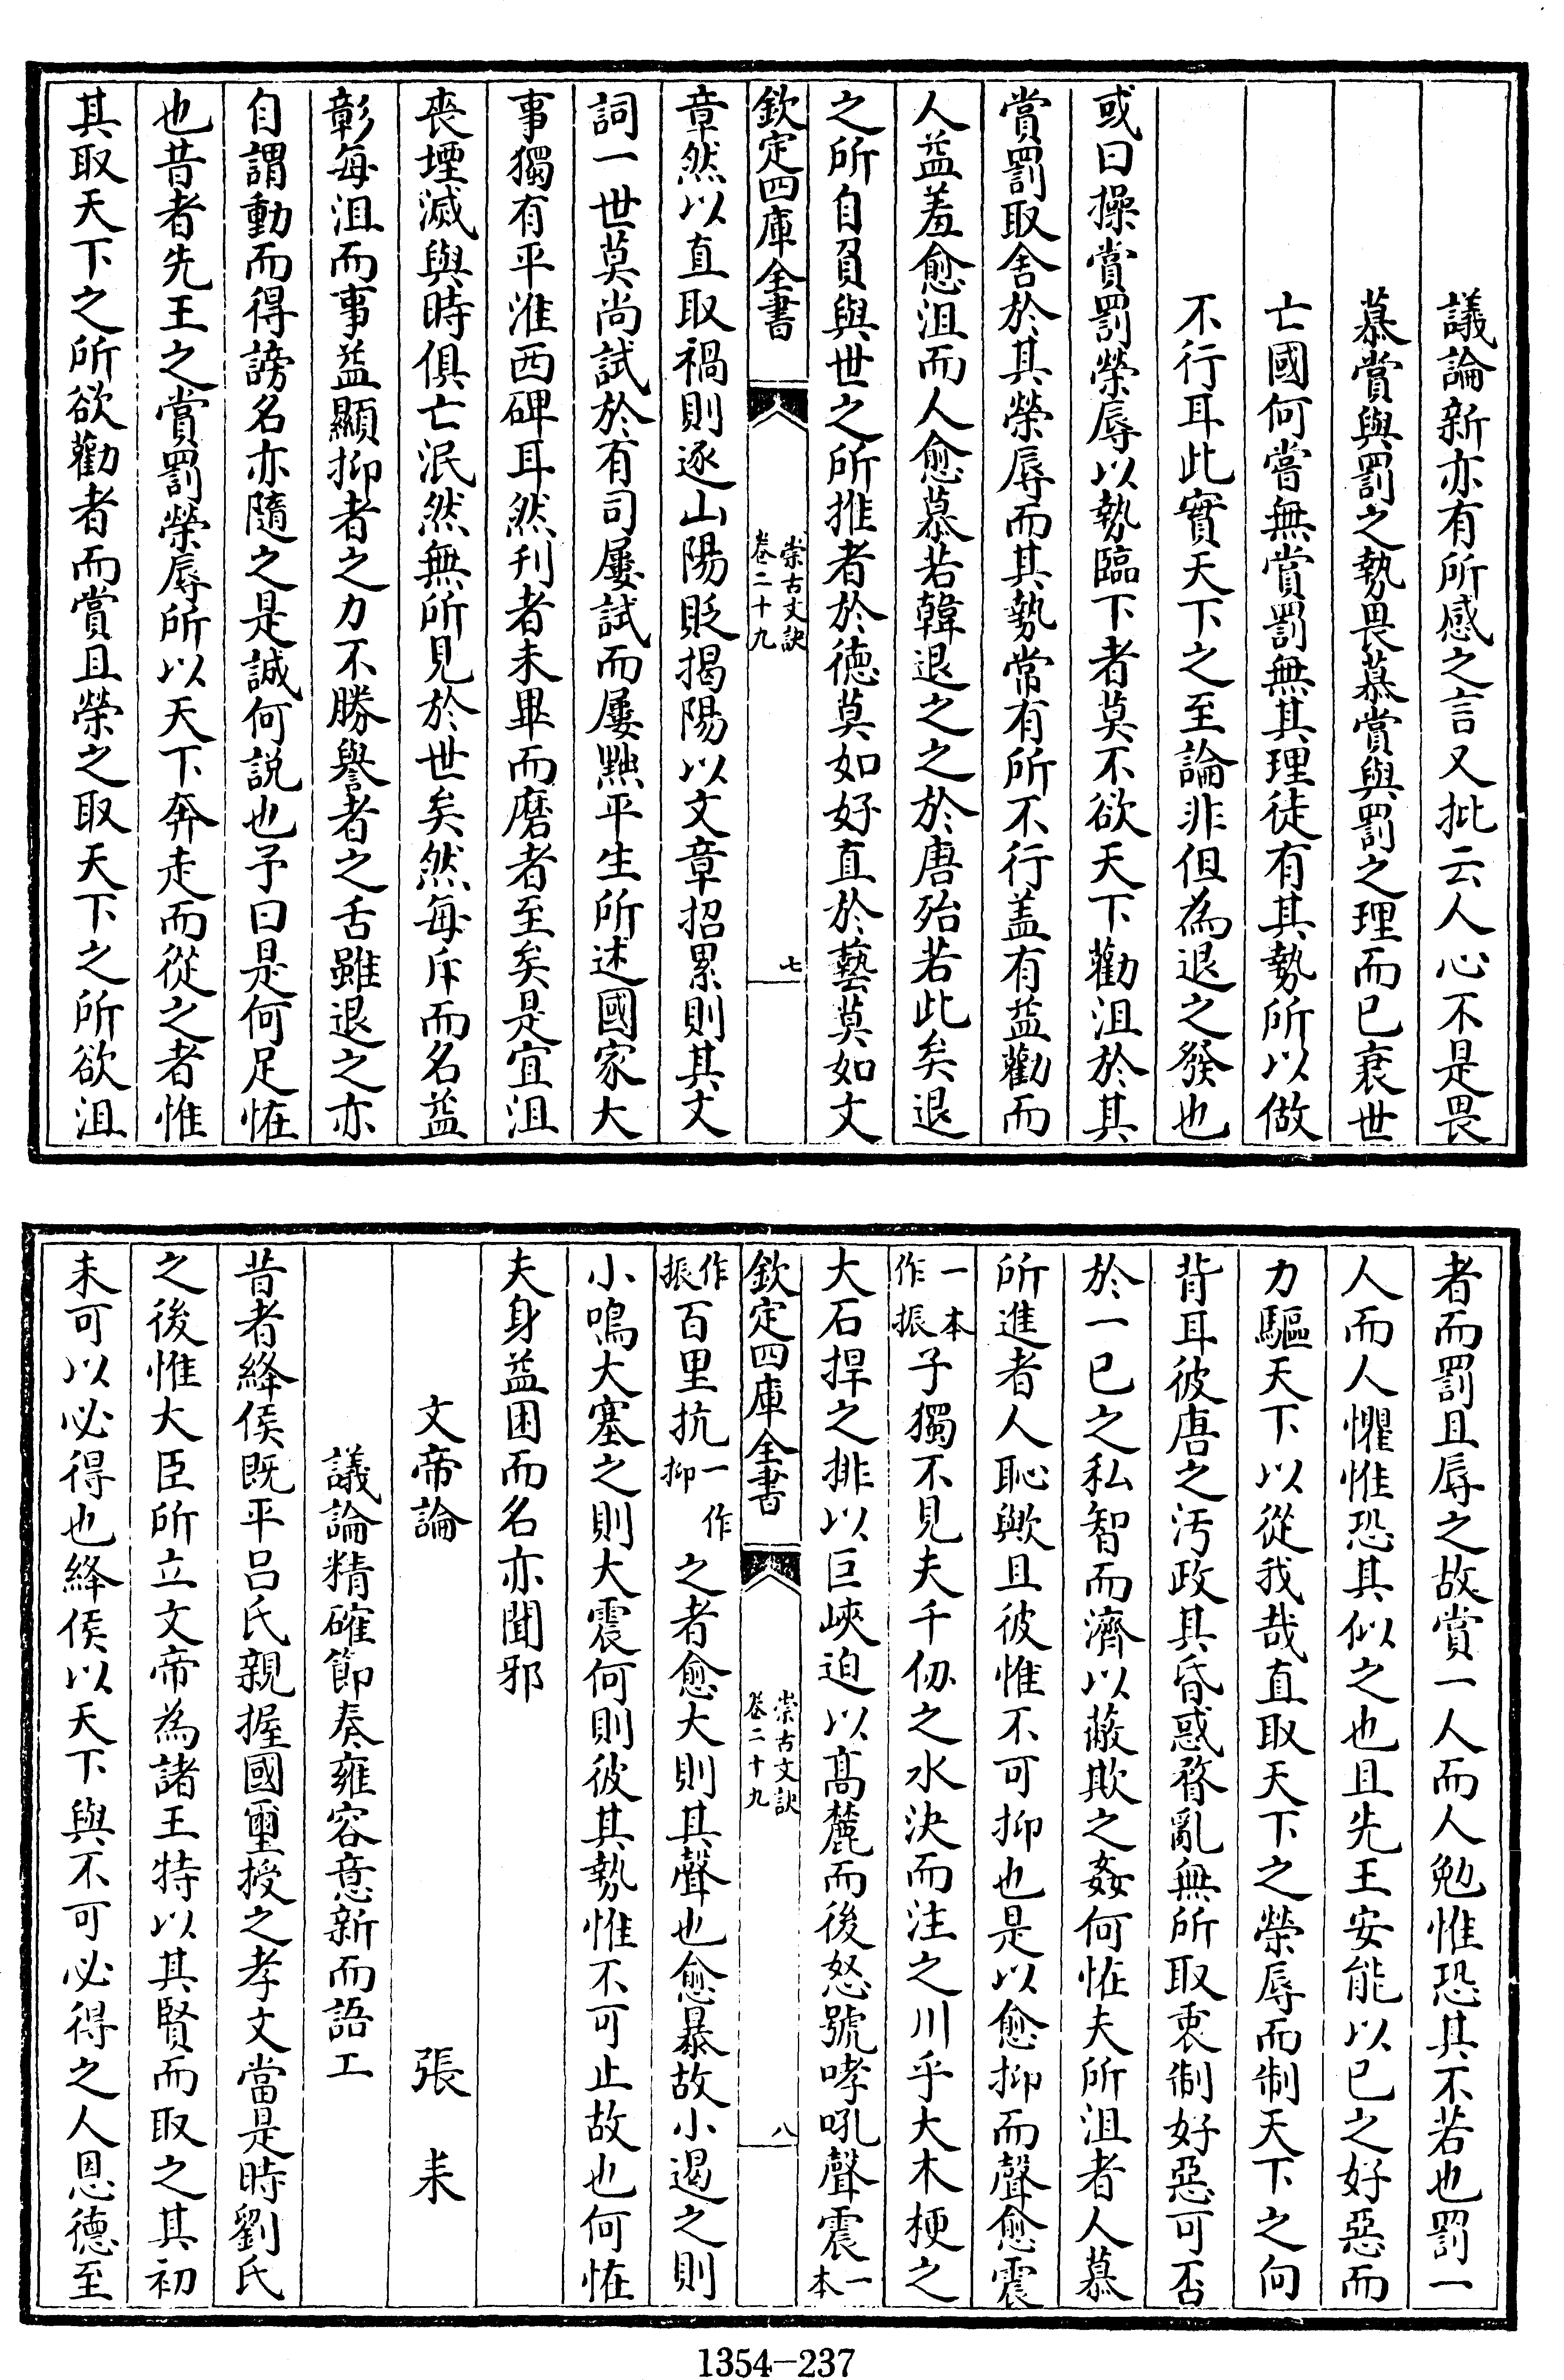 議論新亦有所感之言又批云人心不是畏
慕賞與罰之勢畏慕賞與罰之理而已衰世
亡國何嘗無賞罰無其理徒有其勢所以做
不行耳此實天下之至論非但為退之發也
或曰操賞罰榮辱以勢臨下者莫不欲天下勸沮於其
賞罰取舍於其榮辱而其勢常有所不行盖有益勸而
人益羞愈沮而人愈慕若韓退之之於唐殆若此矣退
之所自負與世之所推者於德莫如好直於藝莫如文
欽定四庫全書
崇古文訣
卷二十九
七
章然以直取禍則逐山陽貶揭陽以文章招累則其文
詞一世莫尚試於有司屢試而屢黜平生所述國家大
事獨有平淮西碑耳然刋者未畢而磨者至矣是宜沮
喪堙滅與時俱亡泯然無所見於世矣然每斥而名益
彰每沮而事益顯抑者之力不勝譽者之舌雖退之亦
自謂動而得謗名亦隨之是誠何説也予曰是何足恠
也昔者先王之賞罰榮辱所以天下奔走而從之者惟
其取天下之所欲勸者而賞且榮之取天下之所欲沮
者而罰且辱之故賞一人而人勉惟恐其不若也罰一
人而人懼惟恐其似之也且先王安能以已之好惡而
力驅天下以從我哉直取天下之榮辱而制天下之向
背耳彼唐之汚政其昏惑瞀亂無所取衷制好惡可否
於一已之私智而濟以蔽欺之姦何恠夫所沮者人慕
所進者人恥歟且彼惟不可抑也是以愈抑而聲愈震
一本
作振
子獨不見夫千仭之水決而注之川乎大木梗之
大石捍之排以巨峽迫以髙麓而後怒號哮吼聲震
一
本
欽定四庫全書
崇古文訣
卷二十九
八
作
振
百里抗
一作
抑
之者愈大則其聲也愈暴故小遏之則
小鳴大塞之則大震何則彼其勢惟不可止故也何恠
夫身益困而名亦聞邪
文帝論 張耒
議論精確節奏雍容意新而語工
昔者絳侯既平吕氏親握國璽授之孝文當是時劉氏
之後惟大臣所立文帝為諸王特以其賢而取之其初
未可以必得也絳侯以天下與不可必得之人恩德至
1354-237